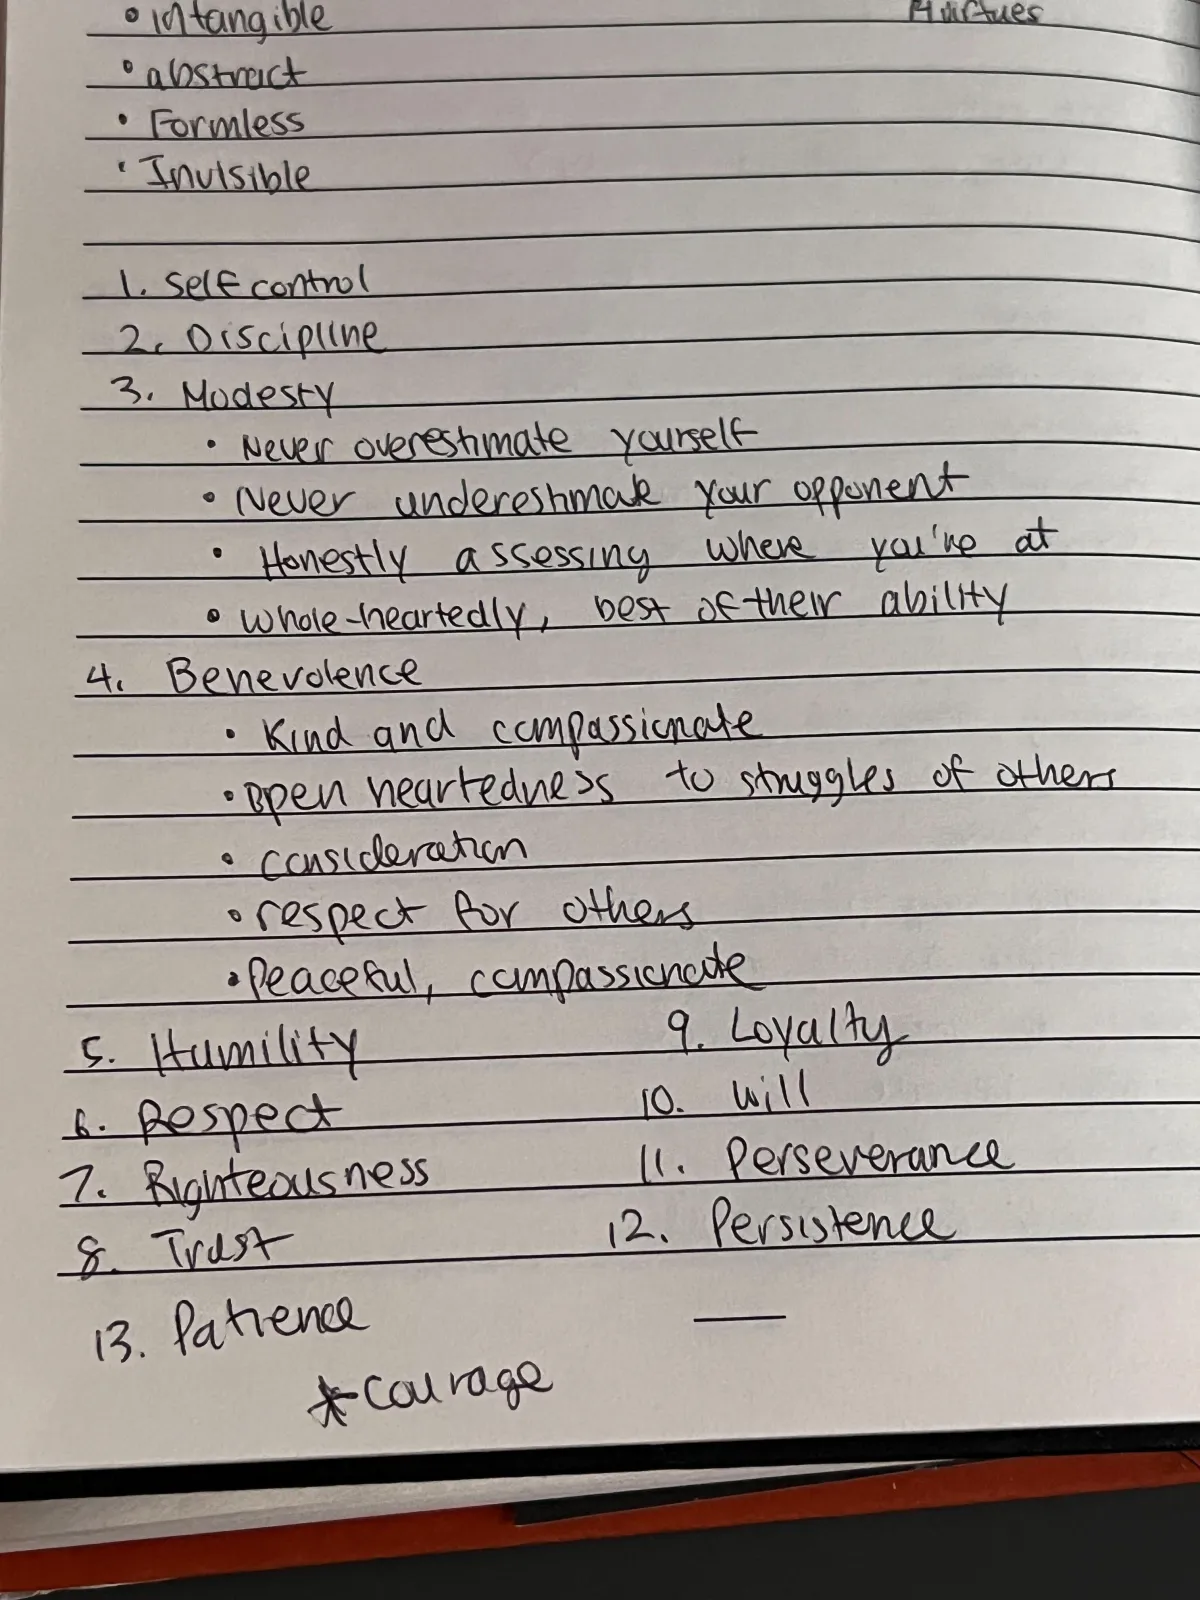 • intangible
virtues
• abstract
• Formless
• Invisible
1. Self control
2. Discipline
3. Modesty
• Never overestimate yourself
• Never underestimate your opponent
• Honestly assessing where you're at
• whole-heartedly, best of their ability
4. Benevolence
• Kind and compassionate
• open heartedness to struggles of others
• consideration
• respect for others
• Peaceful, compassionate
5. Humility
6. Respect
7. Righteousness
8. Trust
9. Loyalty
10. Will
11. Perseverance
12. Persistence
13. Patience
*courage